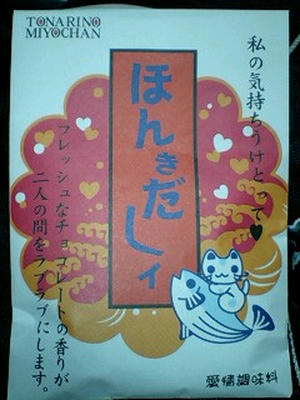 TONARINO
MIYOCHAN
私の気持ちうけとって♥
ほんきだしィ
フレッシュなチョコレートの香りが
二人の間をラブラブにします。
愛情調味料